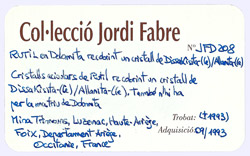 Col·lecció Jordi Fabre
Nº JFD208
Rutil en Dolomita recobrint un cristall de Dissakisita-(Ce)/Allanita-(Ce)
Cristalls aciculars de Rutil recobrint un cristall de
Dissakisita-(Ce)/Allanita-(Ce). També n'hi ha
per la matriu de Dolomita
Mina Trimouns, Luzenac, Haute-Ariège, Trobat: (<1993)
Foix, Departament Ariège, Adquisició: 09/1993
Occitanie, France